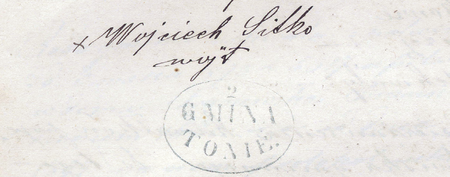 x Wojciech Sitko
wójt
2
GMINA
TONIE.